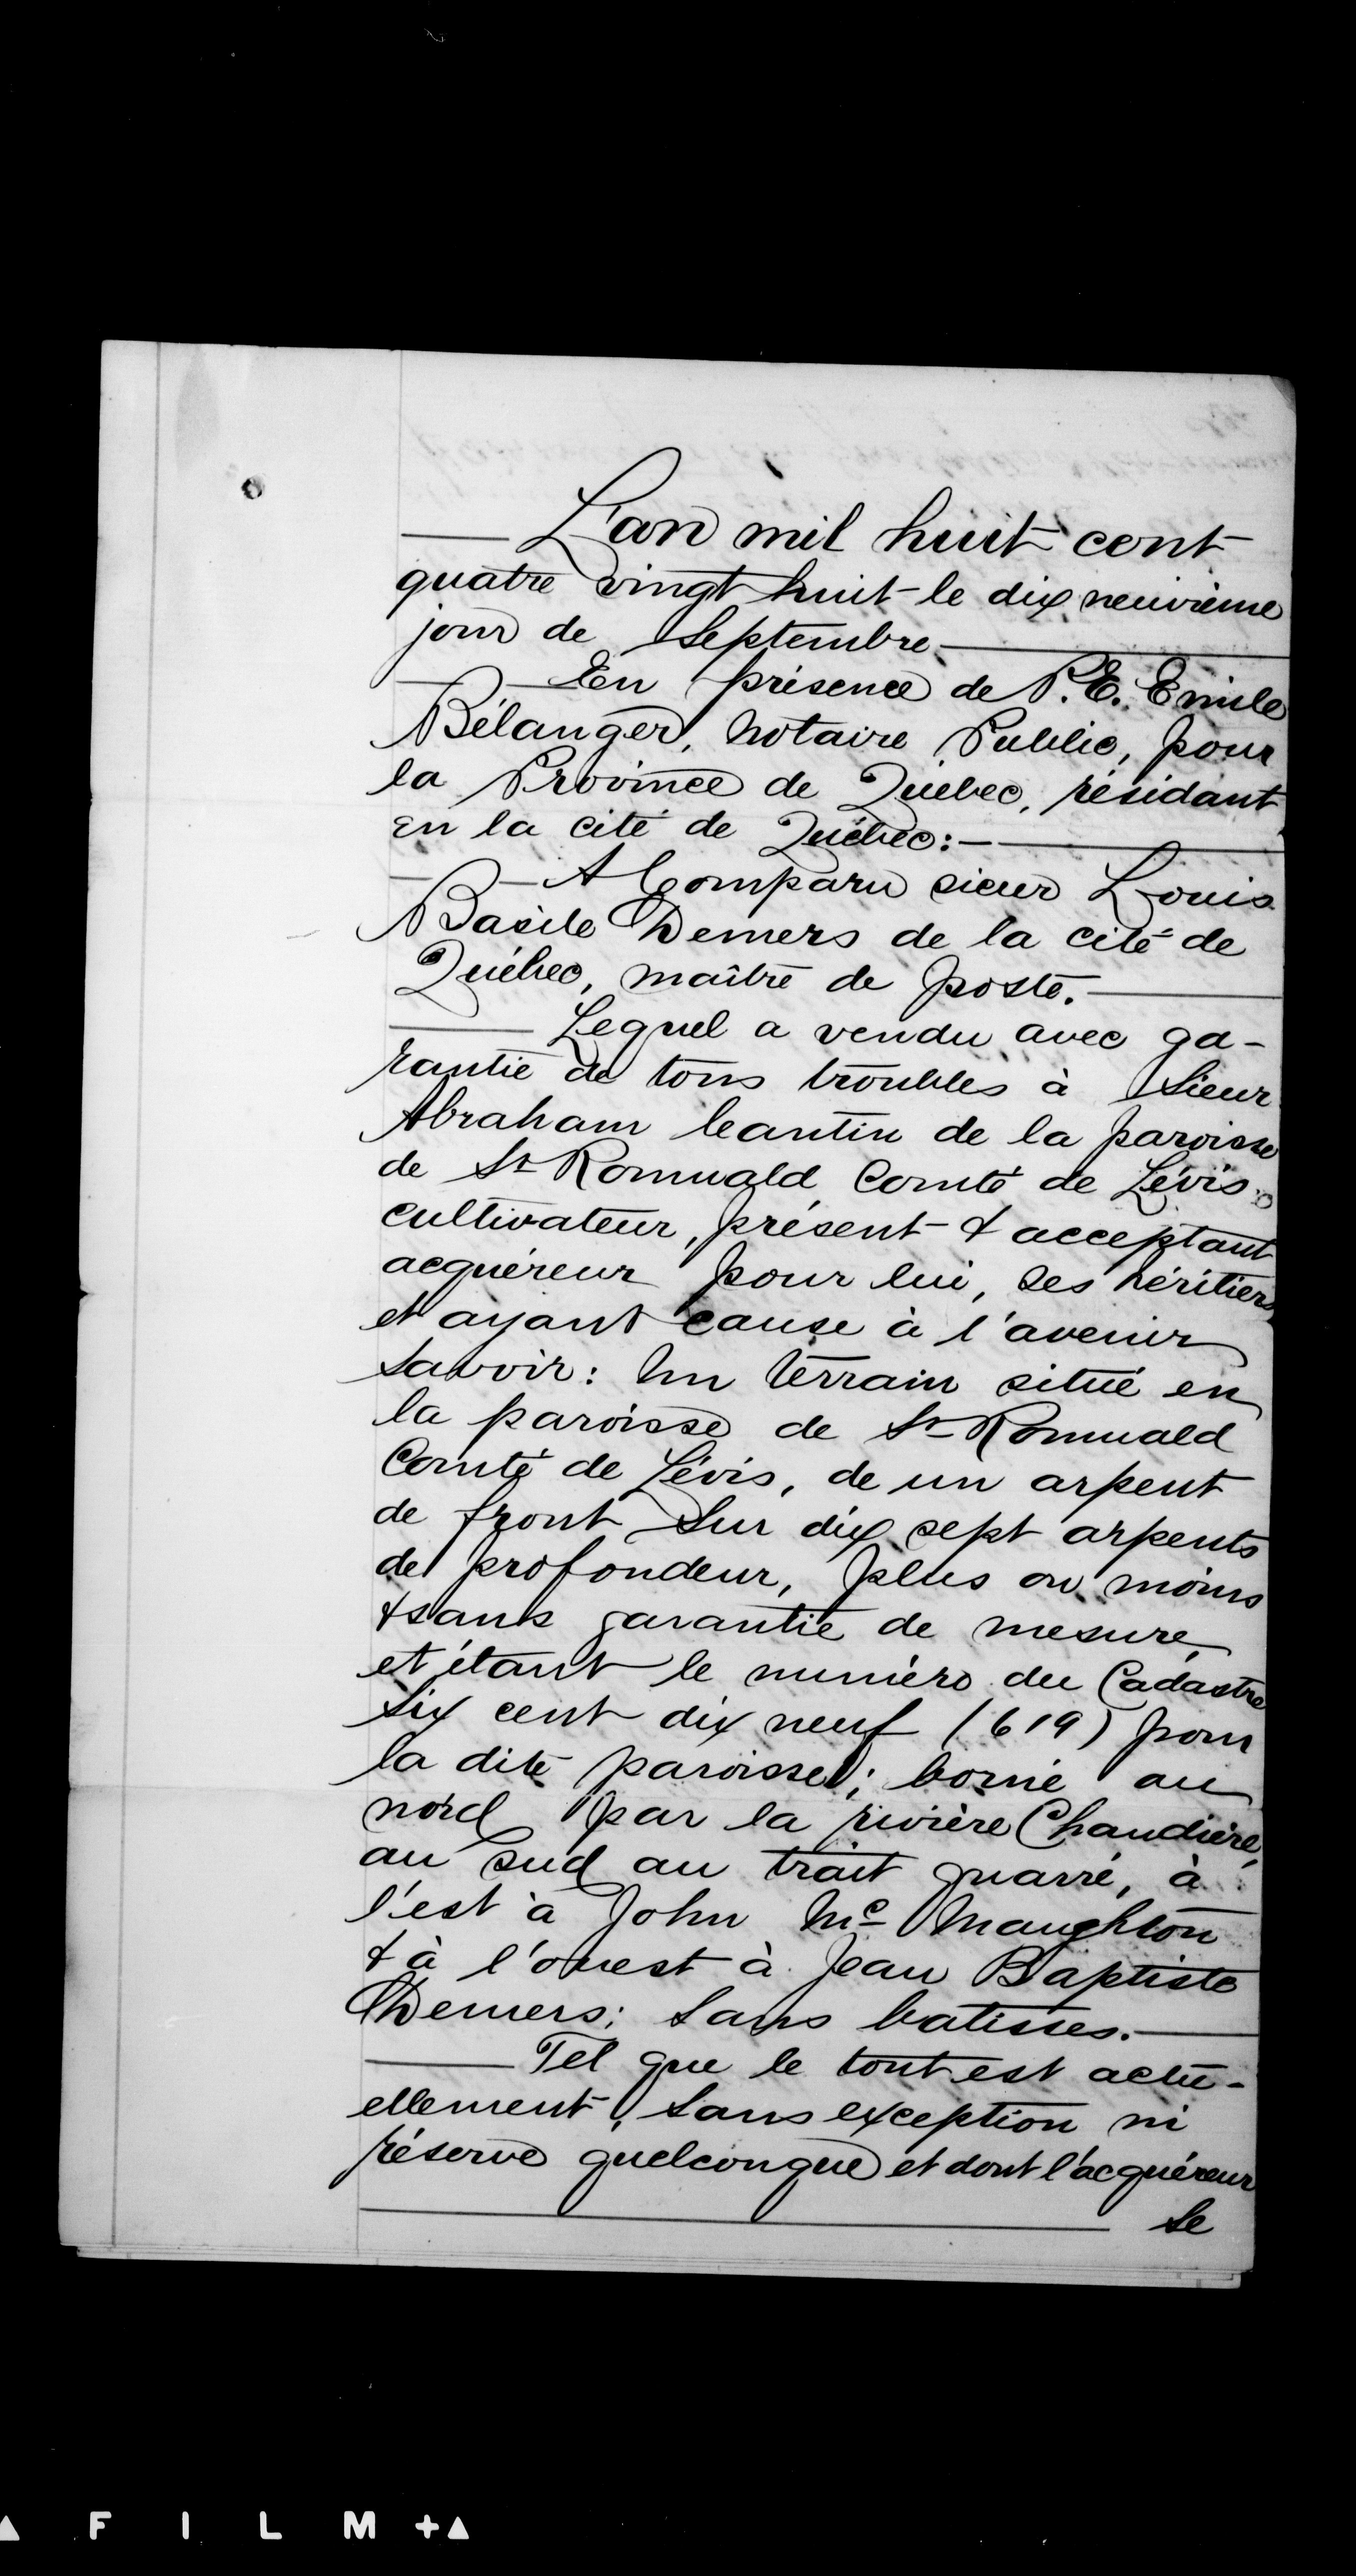 L'an mil huit cent
quatre vingt huit le dix neuvième
jour de Septembre
En présence de P. E. Emile
Bélanger, Notaire Public, pour
la Province de Québec, résidant
en la cité de Québec:
A Comparu sieur Louis
Basile Demers de la cité de
Québec, maître de poste.
Lequel a vendu avec ga-
rantie de tous troubles à Sieur
Abraham Cantin de la paroisse
de St Romuald Comté de Lévis
cultivateur, présent & acceptant
acquéreur pour lui, ses héritiers
et ayant cause à l'avenir
savoir: Un terrain situé en
la paroisse de St Romuald
Comté de Lévis, de un arpent
de front sur dix sept arpents
de profondeur, plus ou moins
& sans garantie de mesure
et étant le numéro du Cadastre
six cent dix neuf (619) pour
la dite paroisse; borné au
nord par la rivière Chaudière,
au sud au trait quarré, à
l'est à John Mc Naughton
& à l'ouest à Jean Baptiste
Demers; sans batisses.
Tel que le tout est actu-
ellement, sans exception ni
réserve quelconque et dont l'acquéreur
se
FILM +